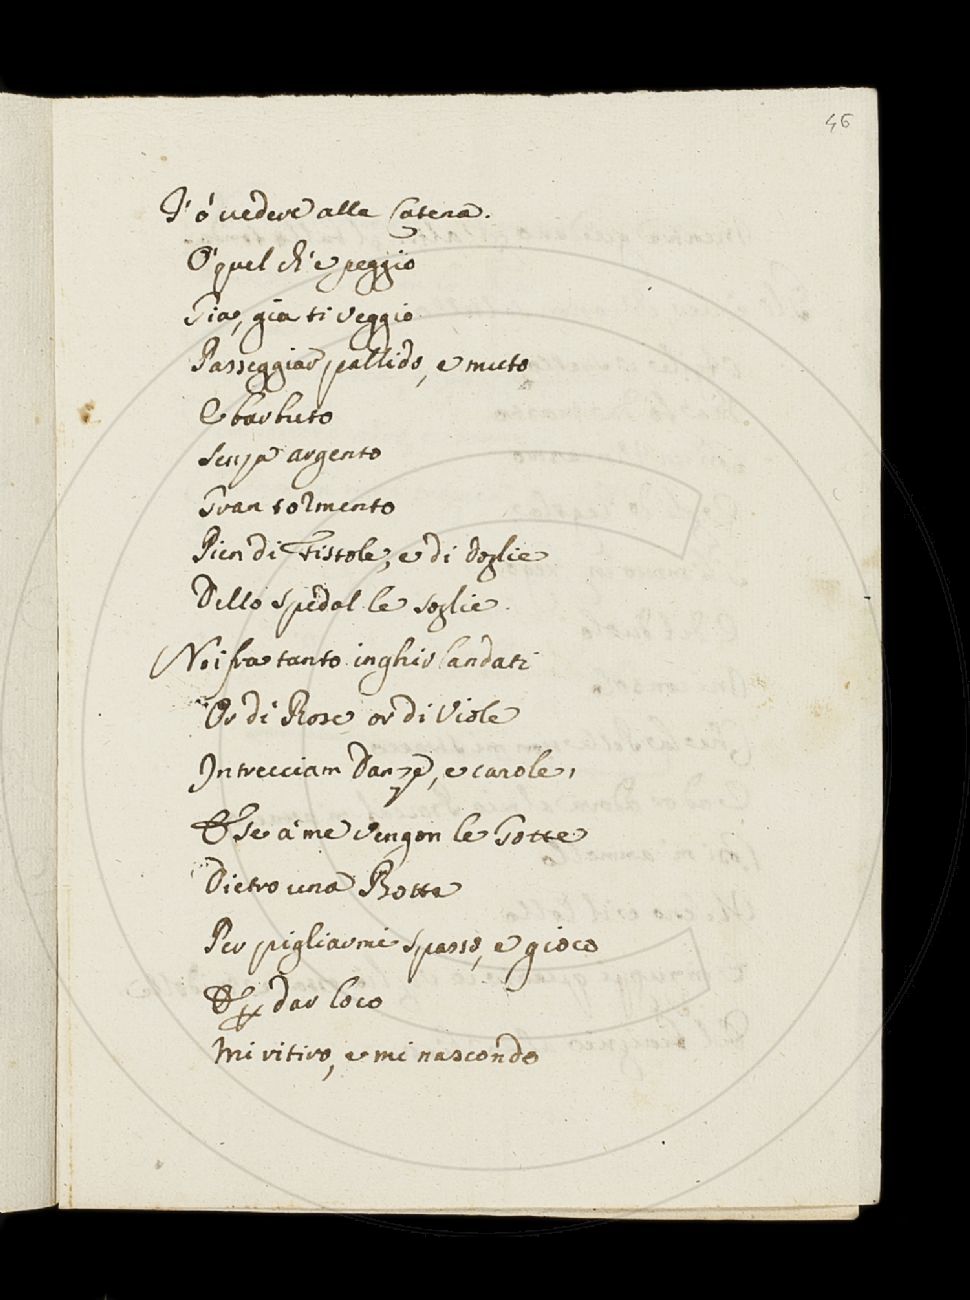 46
T'ó vedere alla Catena.
O' quel ch'e peggio
Gia, gia ti veggio
Passeggiar pallido, e muto
E barbuto
Senza argento
Gran tormento
Pien di Fistole, e di doglie
Dello spedal le soglie.
Noi fra tanto inghirlandati
Or di Rose or di Viole
Intrecciam Danze, e carole,
E se a' me vengon le Gotte
Dietro una Botte
Per pigliarmi spasso, e gioco
E p dar loco
Mi ritiro, e mi nascondo